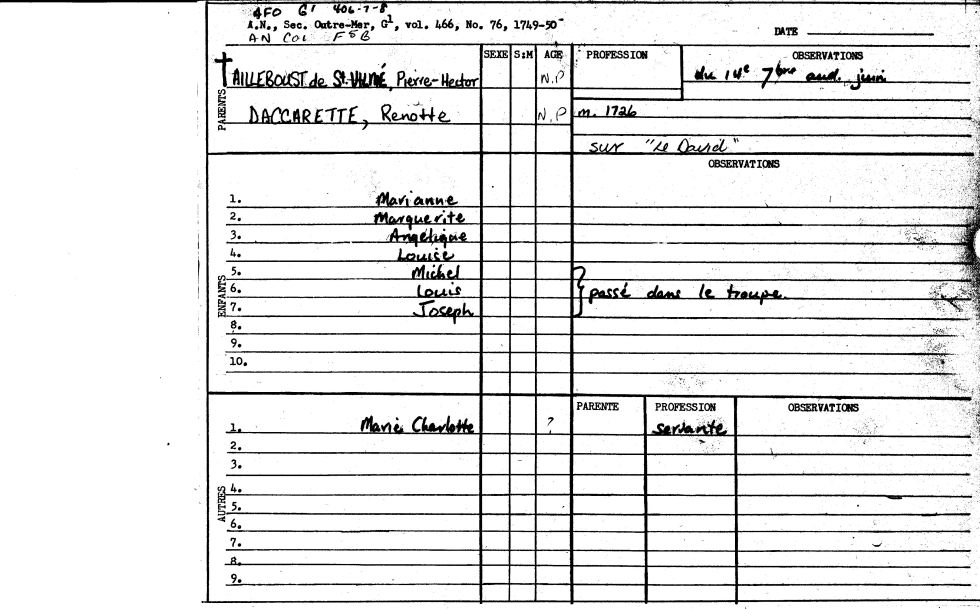 4FO G¹ 406-7-8
A.N., Sec. Outre-Mer, G¹, vol. 466, No. 76, 1749-50
AN COL F5B
DATE
SEXE S:M AGE PROFESSION OBSERVATIONS
AILLEBOUST de St. VILMÉ, Pierre-Hector N.P du 14e 7bre aud. juin
PARENTS
DACCARETTE, Renotte N.P m. 1726
sur "Le David"
OBSERVATIONS
ENFANTS
1. Marianne
2. Marguerite
3. Angélique
4. Louise
5. Michel
6. Louis passé dans le troupe.
7. Joseph
8.
9.
10.
PARENTE PROFESSION OBSERVATIONS
AUTRES
1. Marie Charlotte ? servante
2.
3.
4.
5.
6.
7.
8.
9.